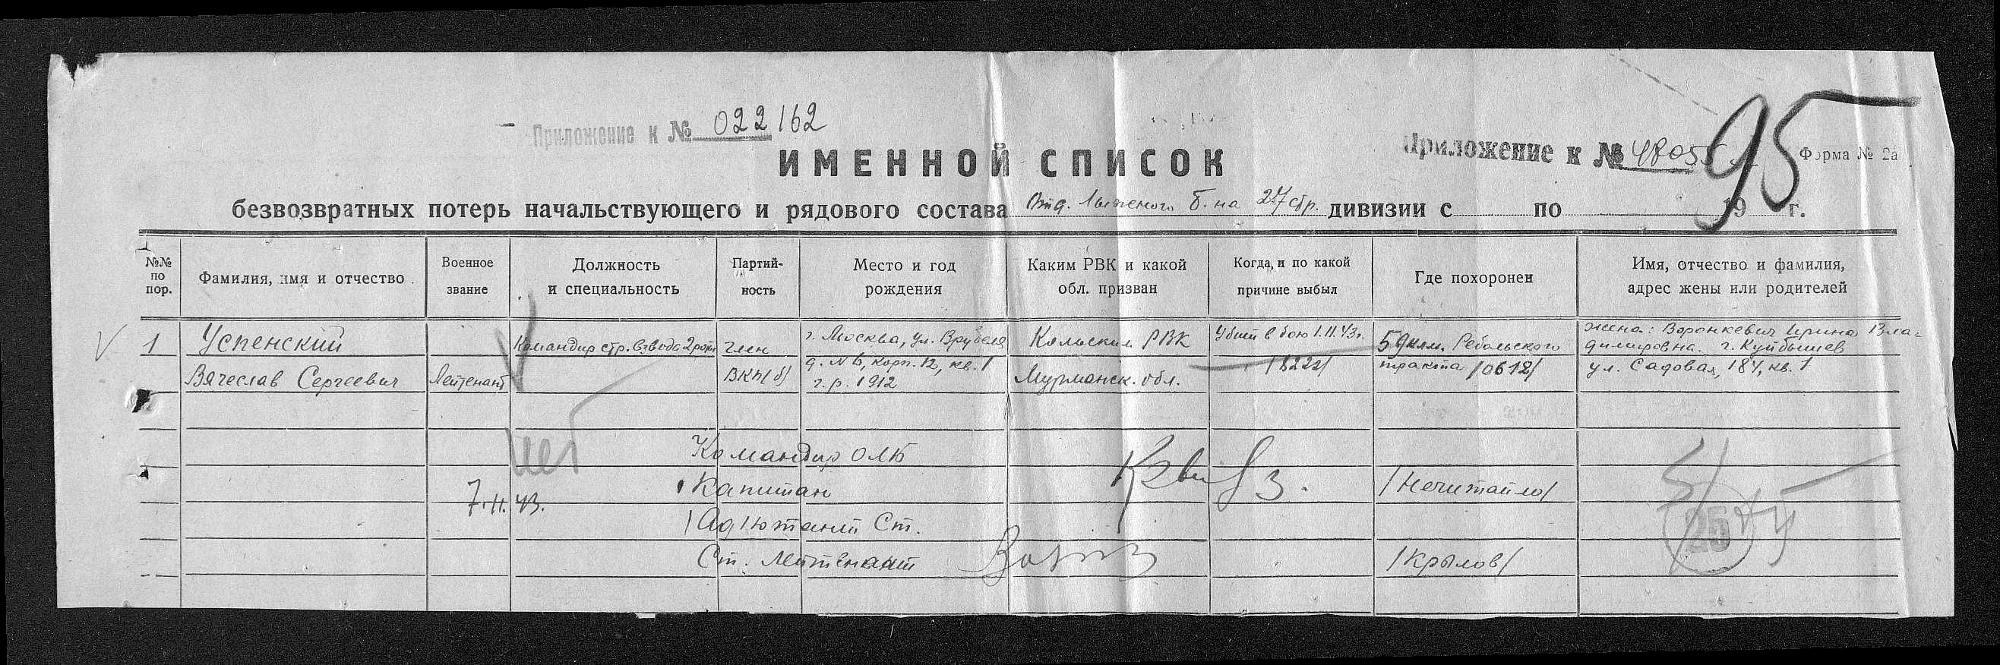 Приложение к № 022162
ИМЕННОЙ СПИСОК
Приложение к №
95
Форма № 2а
безвозвратных потерь начальствующего и рядового состава Отд. Лыжного б-на 27 стр. дивизии с по 19 г.
№№ по пор.
Фамилия, имя и отчество
Военное звание
Должность и специальность
Партий-ность
Место и год рождения
Каким РВК и какой обл. призван
Когда, и по какой причине выбыл
Где похоронен
Имя, отчество и фамилия, адрес жены или родителей
V 1
Успенский
Вячеслав Сергеевич
Лейтенант
Командир стр. взвода 2 роты
член
ВКП(б)
г. Москва, ул. Врубеля
д. №8, корп. 12, кв. 1
г.р. 1912
Кольским РВК
Мурманск. обл.
Убит в бою 1.11.43г.
/1822/
59 клм. Ребольского
тракта /0612/
жена: Воронкевич Ирина Вла-
димировна. г. Куйбышев
ул. Садовая, 184, кв. 1
нет
Командир ОЛБ
7.11.43.
Капитан
/Нечитайло/
Адъютант Ст.
Ст. Лейтенант
/Крылов/
25